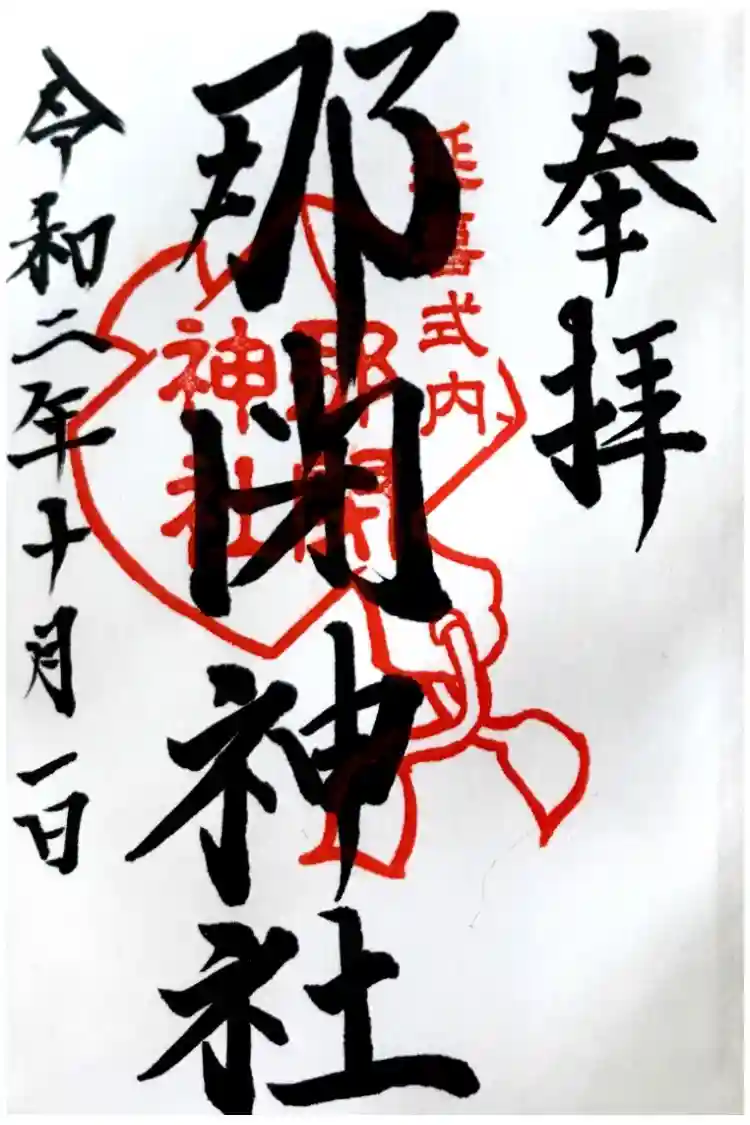 奉拝
延喜式内
那閉神社
那閉
神社
令和二年十月一日